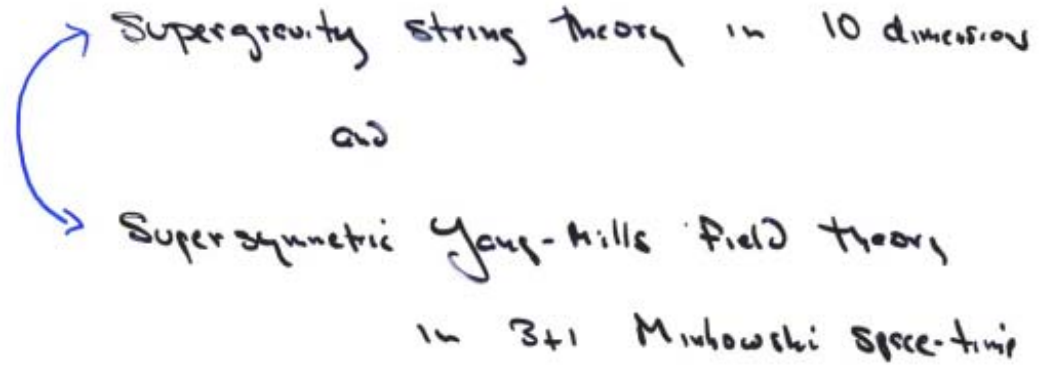 Supergravity string theory in 10 dimensions
and
Supersymmetric Yang-Mills field theory
in 3+1 Minkowski space-time